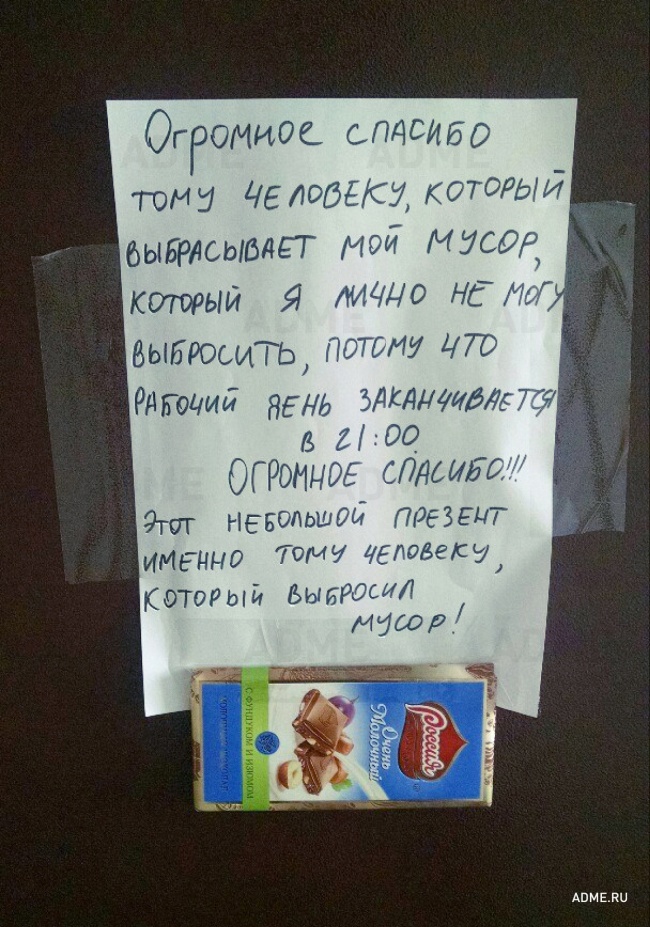 Огромное спасибо
тому человеку, который
выбрасывает мой мусор,
который я лично не могу
выбросить, потому что
рабочий день заканчивается
в 21:00.
Огромное спасибо!!!
Этот небольшой презент
именно тому человеку,
который выбросил
мусор!
Россия
Очень
Молочный
С ФУНДУКОМ И ИЗЮМОМ
ADME
ADME.RU